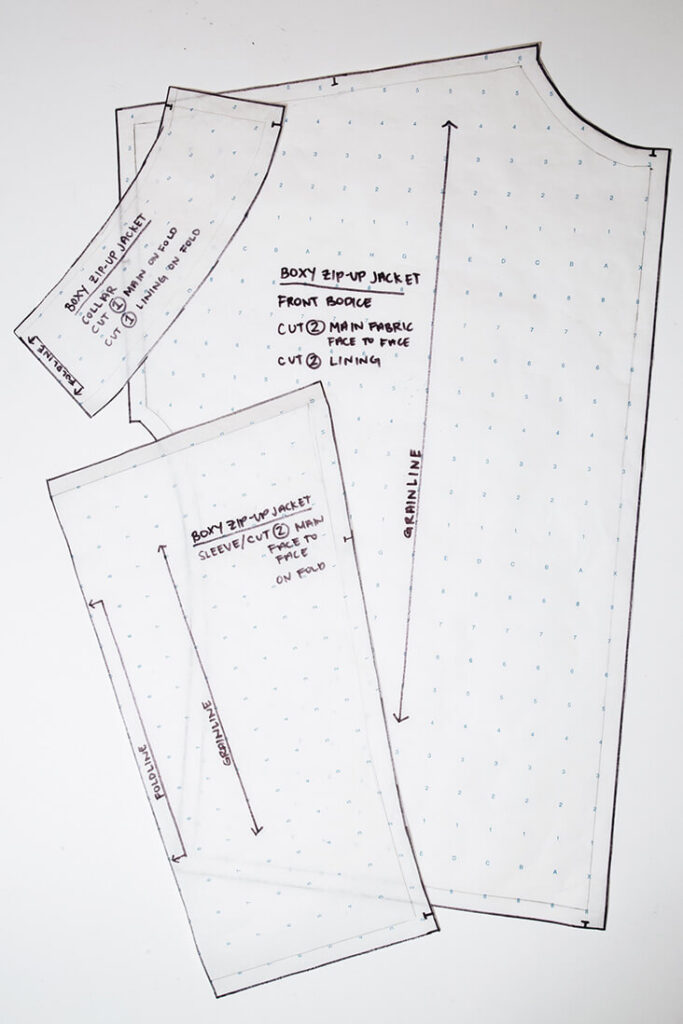 BOXY ZIP-UP JACKET
COLLAR
CUT ① MAIN ON FOLD
CUT ① LINING ON FOLD
FOLDLINE
BOXY ZIP-UP JACKET
FRONT BODICE
CUT ② MAIN FABRIC
FACE TO FACE
CUT ② LINING
GRAINLINE
BOXY ZIP-UP JACKET
SLEEVE/CUT ② MAIN
FACE TO
FACE
ON FOLD
GRAINLINE
FOLDLINE